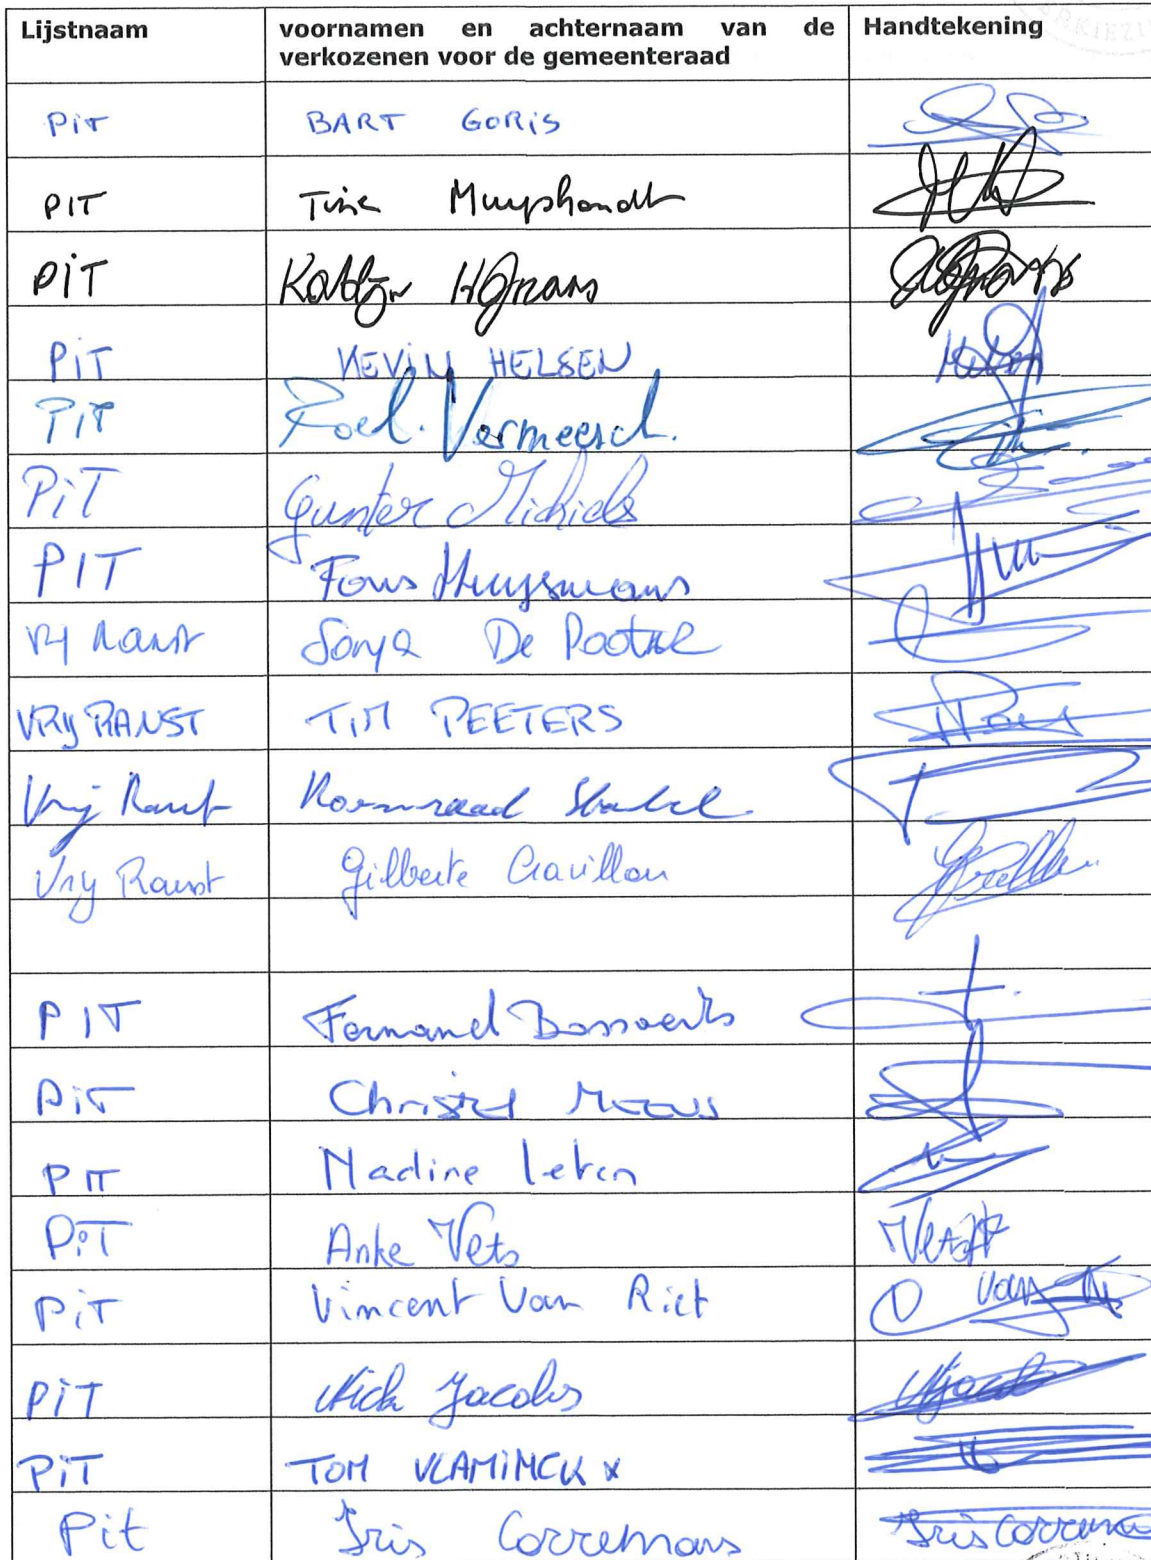 Lijstnaam voornamen en achternaam van de Handtekening
verkozenen voor de gemeenteraad
PiT BART GORiS
PIT Tine Muyshondt
PiT Katlijn Hofmans
PiT KEVIN HELSEN
PiT Roel Vermeesch
PiT Gunter Michiels
PIT Fons Huysmans
Vrij Ranst Sonja De Pooter
VRIJ RANST TIM PEETERS
Vrij Ranst Koenraad
Vrij Ranst Gilberte Cravillon
PIT Fernand Bossaerts
PiT Christel Meeus
PIT Nadine Leten
PiT Anke Vets
PiT Vincent Van Riet
PiT Nick Jacobs
PiT TOM VLAMINCKX
Pit Iris Corremans Iris Corremans